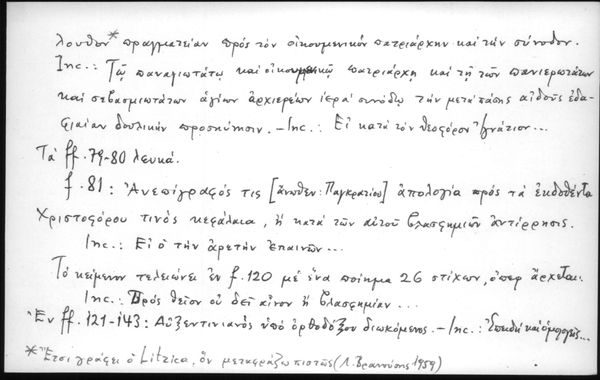 λουθον* πραγματείαν πρὸς τὸν οἰκουμενικὸν πατριάρχην καὶ τὴν σύνοδον.
Inc.: Τῷ παναγιωτάτῳ καὶ οἰκουμενικῷ πατριάρχῃ καὶ τῇ τῶν πανιερωτάτων
καὶ σεβασμιωτάτων ἁγίων ἀρχιερέων ἱερᾷ συνόδῳ τὴν μετὰ πάσης αἰδοῦς ἐδα-
φιαίαν δουλικὴν προσκύνησιν. – Inc.: Εἰ κατὰ τὸν θεοφόρον Ἰγνάτιον...
Τὰ ff. 79-80 λευκά.
f. 81: Ἀνεπίγραφός τις [ἄνωθεν: Παγκρατίου] ἀπολογία πρὸς τὰ ἐκδοθέντα
Χριστοφόρου τινὸς κεφάλαια, ἢ κατὰ τῶν αὐτοῦ βλασφημιῶν ἀντίρρησις.
Inc.: Εἰ ὁ τὴν ἀρετὴν ἐπαινῶν...
Τὸ κείμενον τελειώνει ἐν f. 120 μὲ ἕνα ποίημα 26 στίχων, ὅπερ ἄρχεται:
Inc.: Πρὸς θεῖον οὐ δεῖ αἶνον ἢ βλασφημίαν...
Ἐν ff. 121-143: Αὐξεντινιανὸς ὑπὸ ὀρθοδόξου διωκόμενος. – Inc.: Ἐπειδὴ καὶ ὁμολογεῖς...
* Ἔτσι γράφει ὁ Litzica, ὃν μεταφράζω πιστῶς (Λ. Βρανούσης 1959)